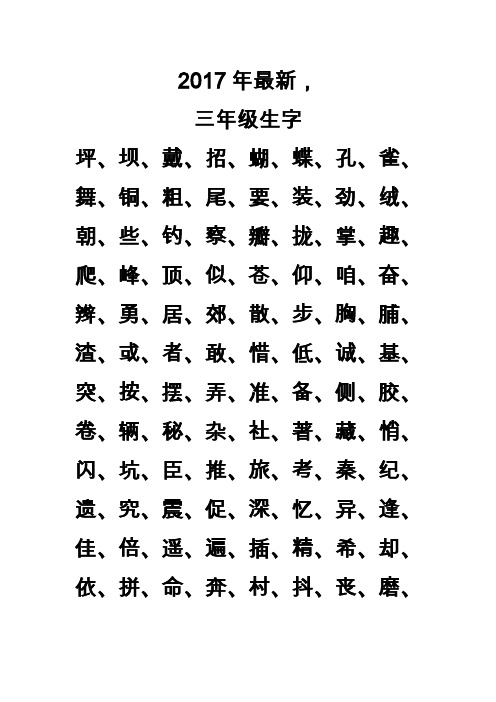 2017年最新，
三年级生字
坪、坝、戴、招、蝴、蝶、孔、雀、
舞、铜、粗、尾、耍、装、劲、绒、
朝、些、钓、察、瓣、拢、掌、趣、
爬、峰、顶、似、苍、仰、咱、奋、
辫、勇、居、郊、散、步、胸、脯、
渣、或、者、敢、惜、低、诚、基、
突、按、摆、弄、准、备、侧、胶、
卷、辆、秘、杂、社、著、藏、悄、
闪、坑、臣、推、旅、考、秦、纪、
遗、究、震、促、深、忆、异、逢、
佳、倍、遥、遍、插、精、希、却、
依、拼、命、奔、村、抖、丧、磨、